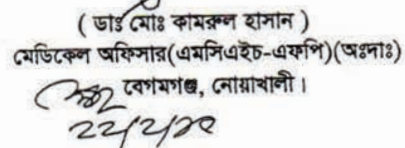 ( ডাঃ মোঃ কামরুল হাসান )
মেডিকেল অফিসার(এমসিএইচ-এফপি)(অঃদাঃ)
বেগমগঞ্জ, নোয়াখালী।